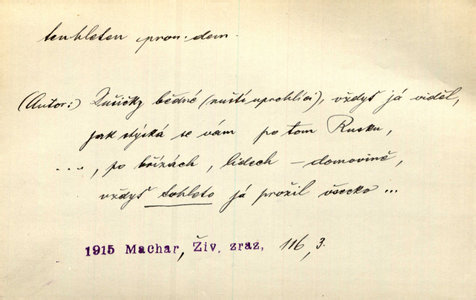 tenhleten pron. dem.
(Autor:) Dušičky bědné (ruští uprchlíci), vždyť já viděl,
jak stýská se vám po tom Rusku,
..., po břízách, lidech – domovině,
vždyť tohleto já prožil všecko ...
1915 Machar, Živ. zraz, 116, 3.